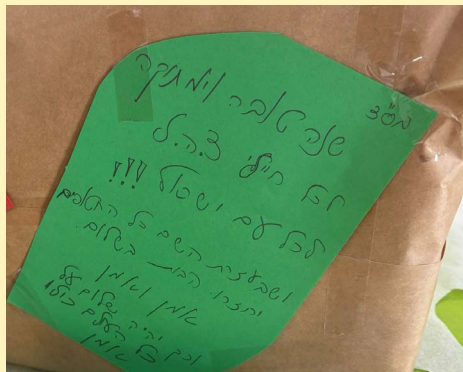 בס"ד
שנה טובה ומתוקה
לכל חיילי צ.ה.ל
לכל עם ישראל !!!
ושבעזרת השם כל החטופים
יחזרו הביתה בשלום
אמן ואמן
וכך יהיה שלום על
כל העולם כולו
אמן